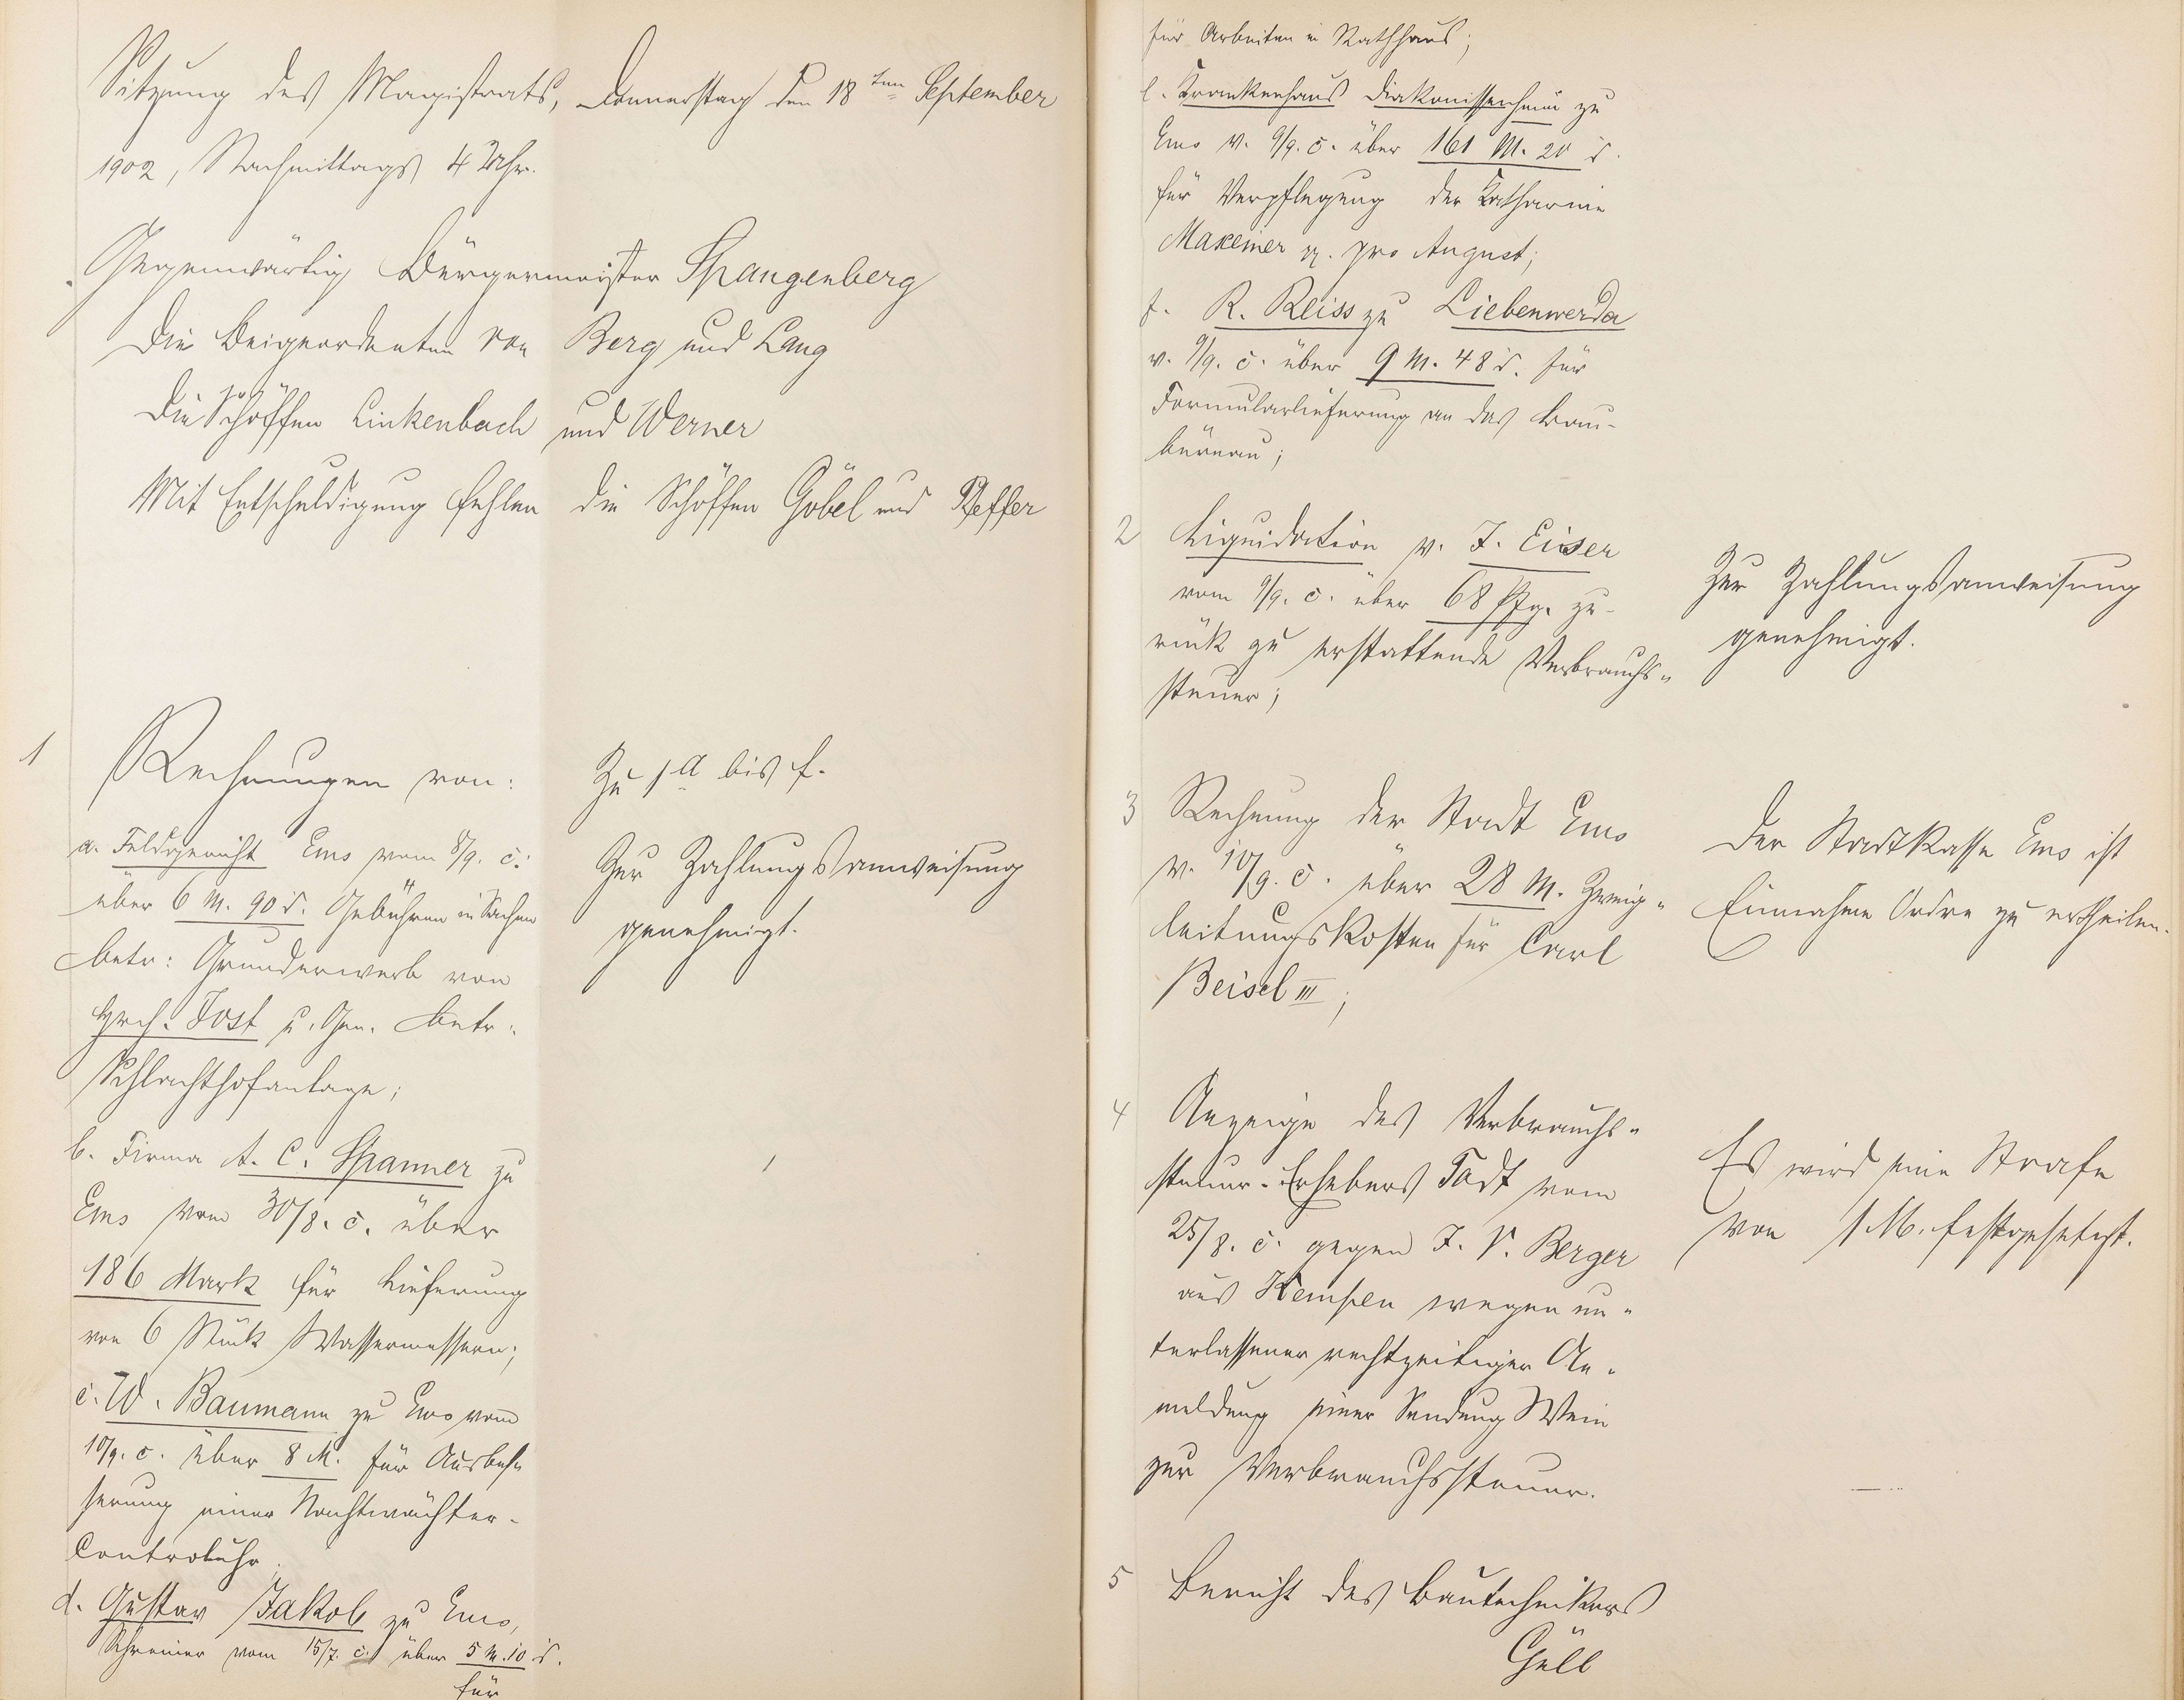 Sitzung des Magistrats, Donnerstag den 18ten September
1902, Nachmittags 4 Uhr.
Gegenwärtig Bürgermeister Spangenberg
Die Beigeordneten von Berg und Lang
Die Schöffen Linkenbach und Werner
Mit Entschuldigung fehlen die Schöffen Göbel und Pfeffer
1 Rechnungen von:
a. Feldgericht Ems vom 8/9. c.
über 6 M. 90 d. Gebühren in Sachen
betr: Grunderwerb von
Hrch. Jost u. Gen. betr.
Schlachthofanlage;
b. Firma A. C. Spanner zu
Ems vom 30/8. c. über
186 Mark für Lieferung
von 6 Stück Wassermessern;
c. W. Baumann zu Ems vom
10/9. c. über 8 M. für Ausbes-
serung einer Nachtwächter-
Controluhr;
d. Gustav Jakob zu Ems,
Schreiner vom 15/7. c. über 5 M. 10 d.
für
Zu 1 a bis f.
Zur Zahlungsanweisung
genehmigt.
für Arbeiten in Rathhaus;
e. Krankenhaus Diakonissenheim zu
Ems v. 9/9. c. über 161 M. 20 d.
für Verpflegung der Katharine
Maxeiner pp. pro August;
f. R. Reiss zu Liebenwerda
v. 9/9. c. über 9 M. 48 d. für
Formularlieferung an das Bau-
büreau;
2 Liquidation v. J. Eiser
vom 9/9. c. über 68 Pfg. zu-
rück zu erstattende Verbrauchs-
steuer;
Zur Zahlungsanweisung
genehmigt.
3 Rechnung der Stadt Ems
v. 10/9. c. über 28 M. Zweig-
leitungskosten für Carl
Beisel III;
Der Stadtkasse Ems ist
Einnahme Ordre zu ertheilen.
4 Anzeige des Verbrauchs-
steuer-Erhebers Todt vom
25/8. c. gegen J. V. Berger
aus Kempten wegen un-
terlassener rechtzeitiger An-
meldung einer Sendung Wein
zur Verbrauchssteuer.
Es wird eine Strafe
von 1 M. festgesetzt.
5 Bericht des Bautechnikers
Güll